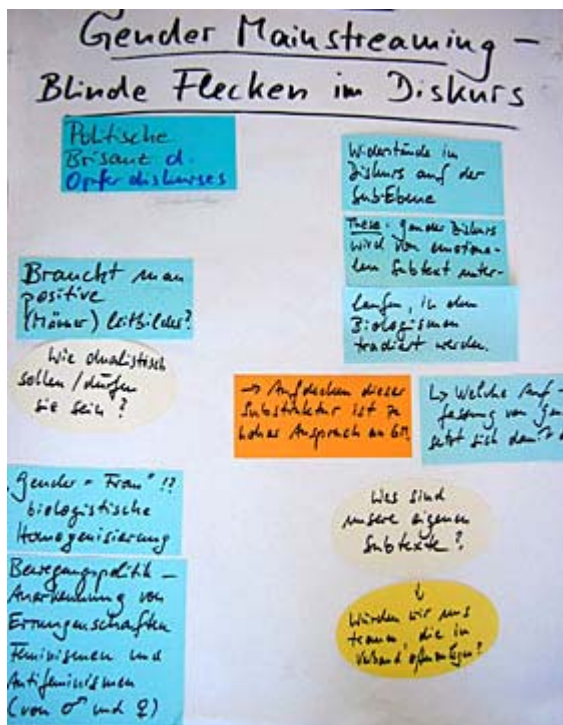 Gender Mainstreaming –
Blinde Flecken im Diskurs
Politische
Brisanz d.
Opferdiskurses
Braucht man
positive
(Männer) leitbilder?
Wie dualistisch
sollen/dürfen
sie sein?
„Gender = Frau" !?
biologistische
Homogenisierung
Bewegungspolitik –
Anerkennung von
Errungenschaften
Feminismen und
Antifeminismen
(von ♂ und ♀)
Widerstände im
Diskurs auf der
Sub-Ebene
These: gender Diskurs
wird von emotiona-
lem Subtext unter-
laufen, in dem
Biologismen
tradiert werden.
→ Aufdecken dieser
Substruktur ist zu
hoher Anspruch an GM.
↳ Welche Auf-
fassung von
setzt sich
Was sind
unsere eigenen
Subtexte?
↓
Würden wir uns
trauen, die im
Verband offenzulegen?